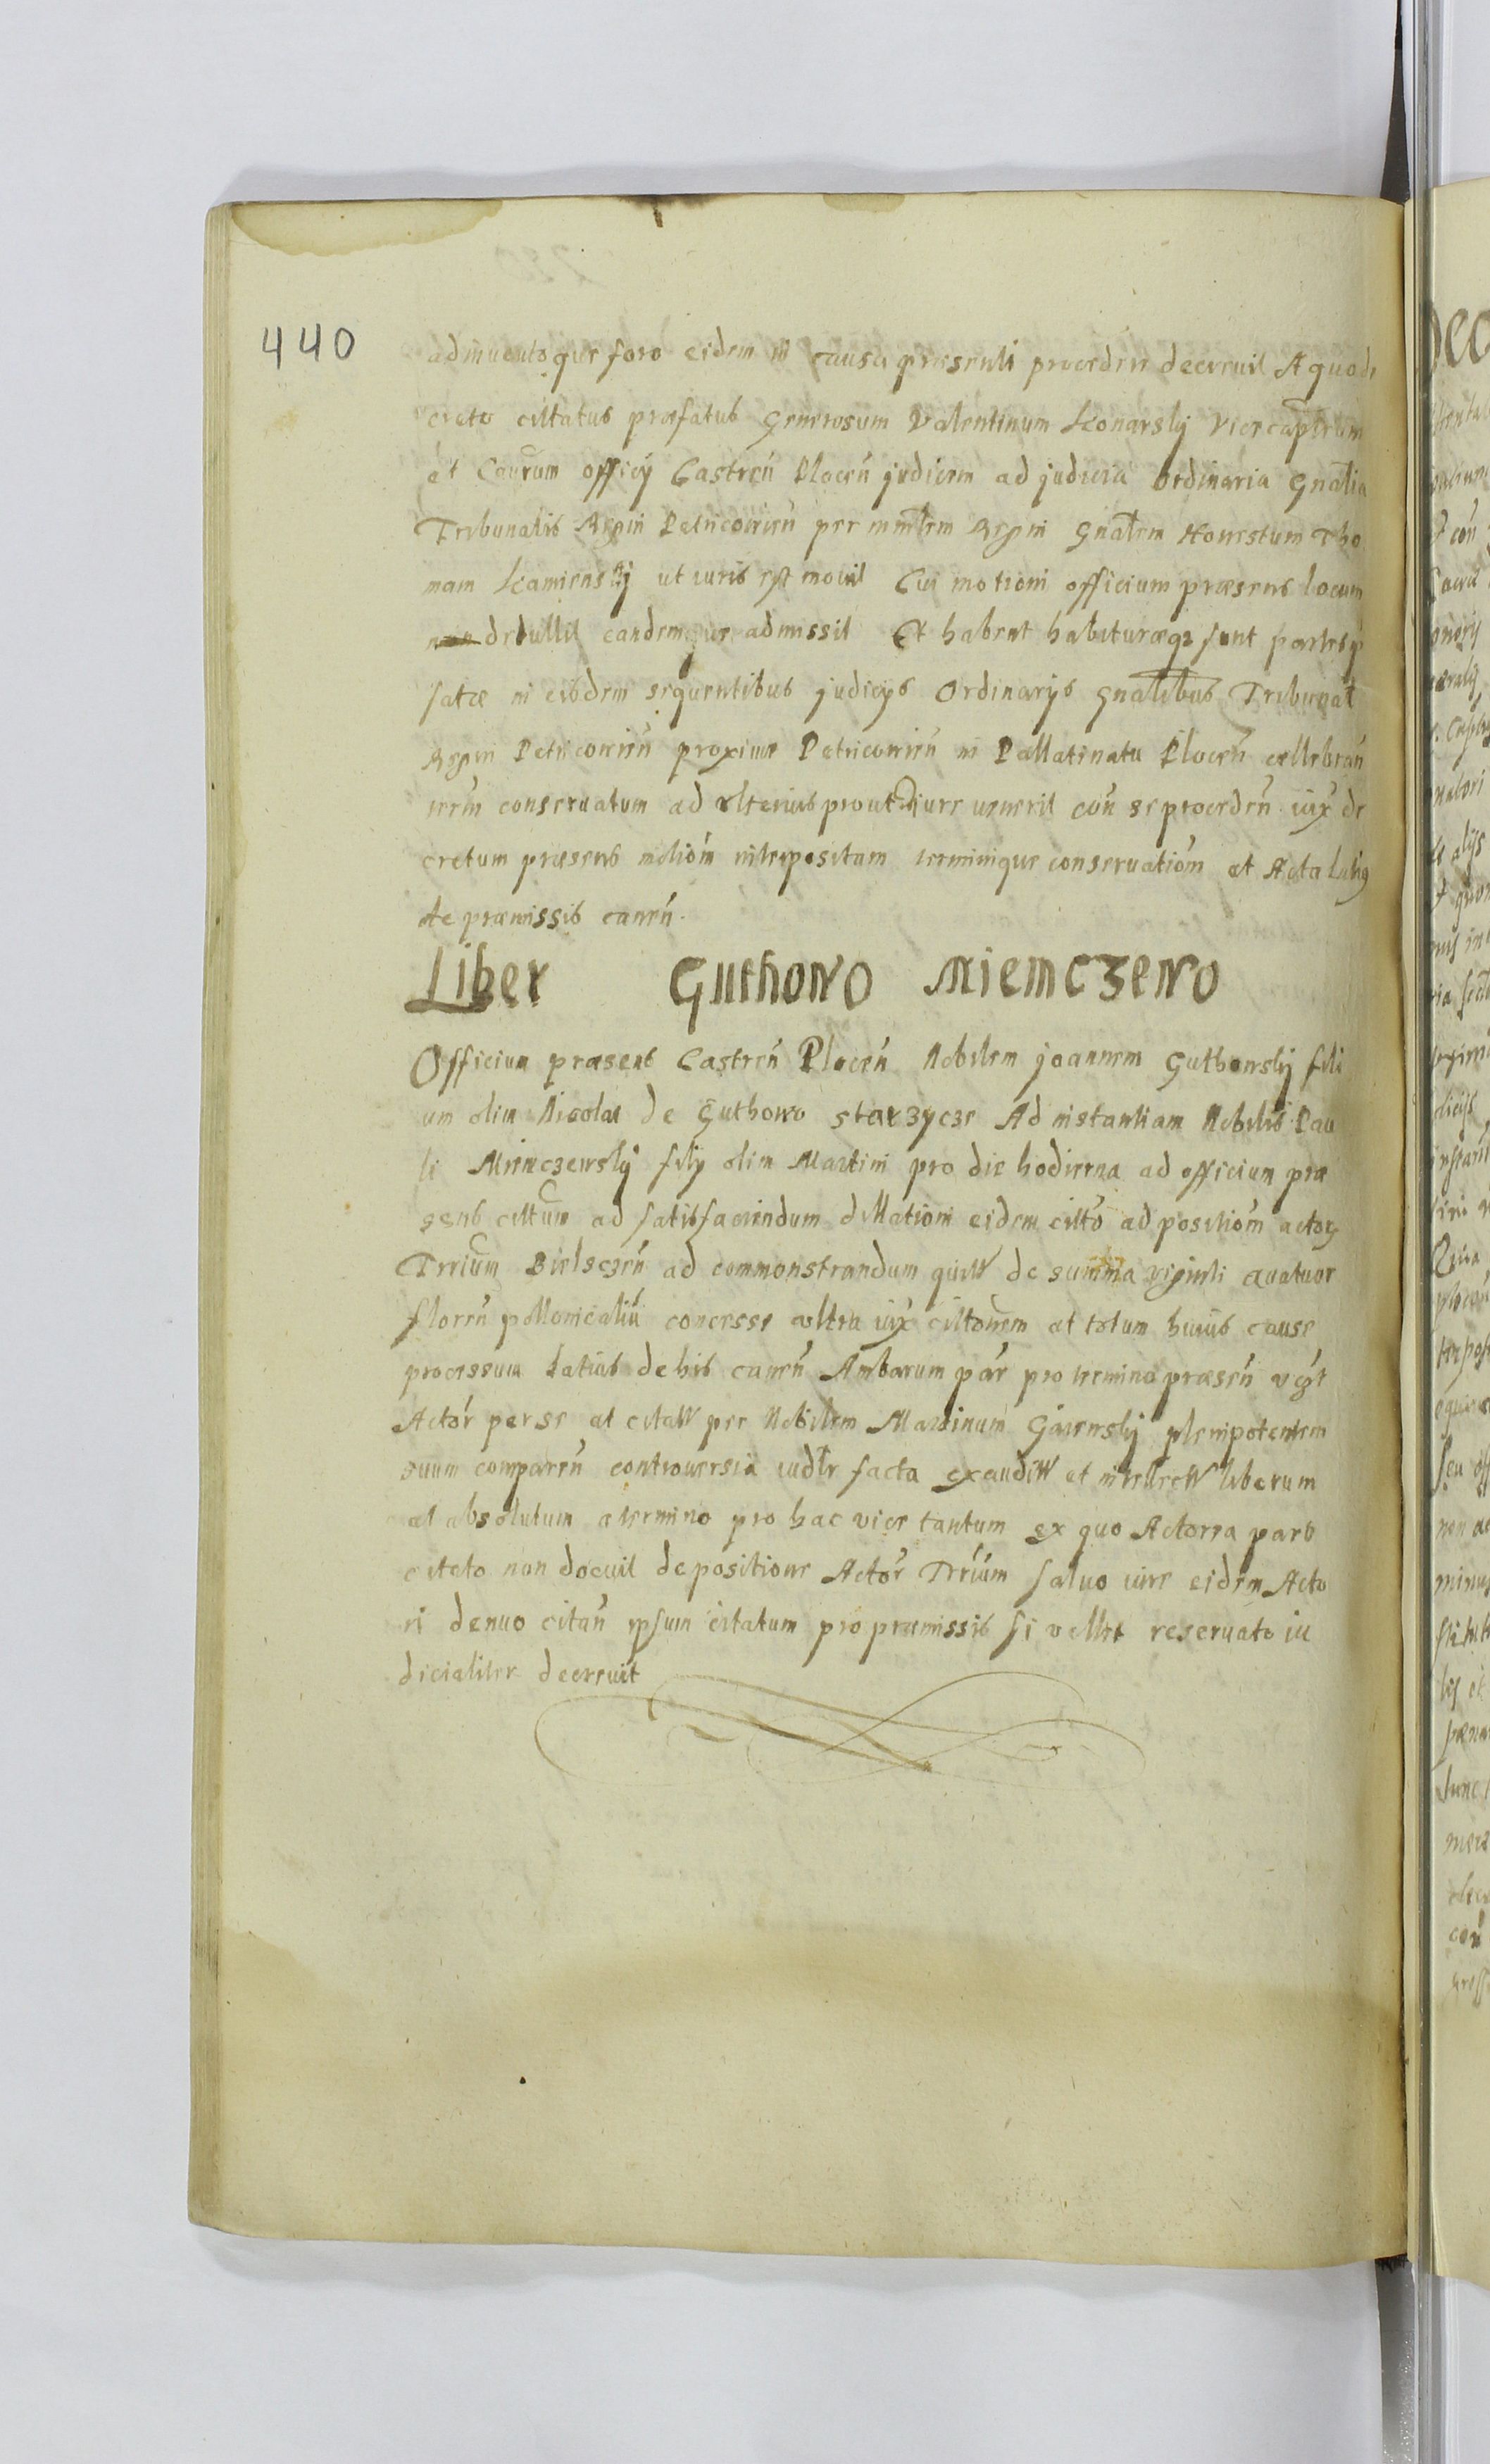 440
adinuentoque foro eidem in causa præsenti procedere decreuit A quo de
creto cittatus præfatus Generosum Valentinum Konarsky Vicecaptneum
et Caurum officÿ Castren Plocen judicem ad judicia Ordinaria Gnalia
Tribunalis Regni Petricouien per mintlem Regni Gnalem Honestum Tho
mam Kamiensky ut iuris est mouit Cui motioni officium præsens locum
non detullit eandemque admissit Et habent habituræqz sunt partes p
fatæ in eisdem sequentibus judicÿs Ordinarÿs Gnalibus Tribunal
Regni Petricouien proxime Petricouien in Pallatinatu Plocen cellebran
term conseruatum ad vlterius prout de iure venerit con se proceden iux de
cretum præsens motiom interpositam terminique conseruatiom et Acta latig
de præmissis canen.
Liber Guthowo Miemczewo
Officium præsens Castren Plocen Nobilem joannem Guthowsky fili
um olim Nicolai de Guthowo Starzycze Ad instantiam Nobilis Pau
li Miemczewsky filÿ olim Martini pro die hodierna ad officium præ
sens cittum ad satisfaciendum dillationi eidem citto ad positiom actor
Trrium Bielsczen ad commonstrandum quitt de summa viginti quatuor
floren pollonicaliu concesse vltra iux cittonem et totum huius cause
processum Latius de his canen Ambarum par pro termino præsen vgt
Actor per se et citatt per Nobilem Martinum plenipotentem
suum comparen controuersia iudlr facta exauditt et intellectt liberum
et absolutum a termino pro hac vice tantum ex quo Actorea pars
citato non docuit de positione Actor Trrium saluo iure eidem Acto
ri denuo citan ipsum citatum pro præmissis si vellet reseruato iu
dicialiter decreuit